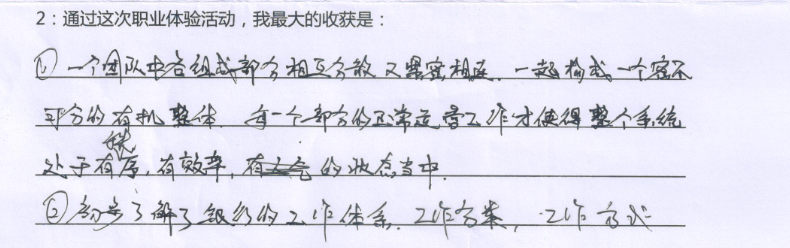 2：通过这次职业体验活动，我最大的收获是：
① 一个团队中各组成部分相互分散又紧密相连，一起构成一个密不
可分的有机整体，每一个部分的正常运营工作才使得整个系统
处于有秩序，有效率，有士气的状态当中。
② 初步了解了银行的工作体系，工作方案，工作方式